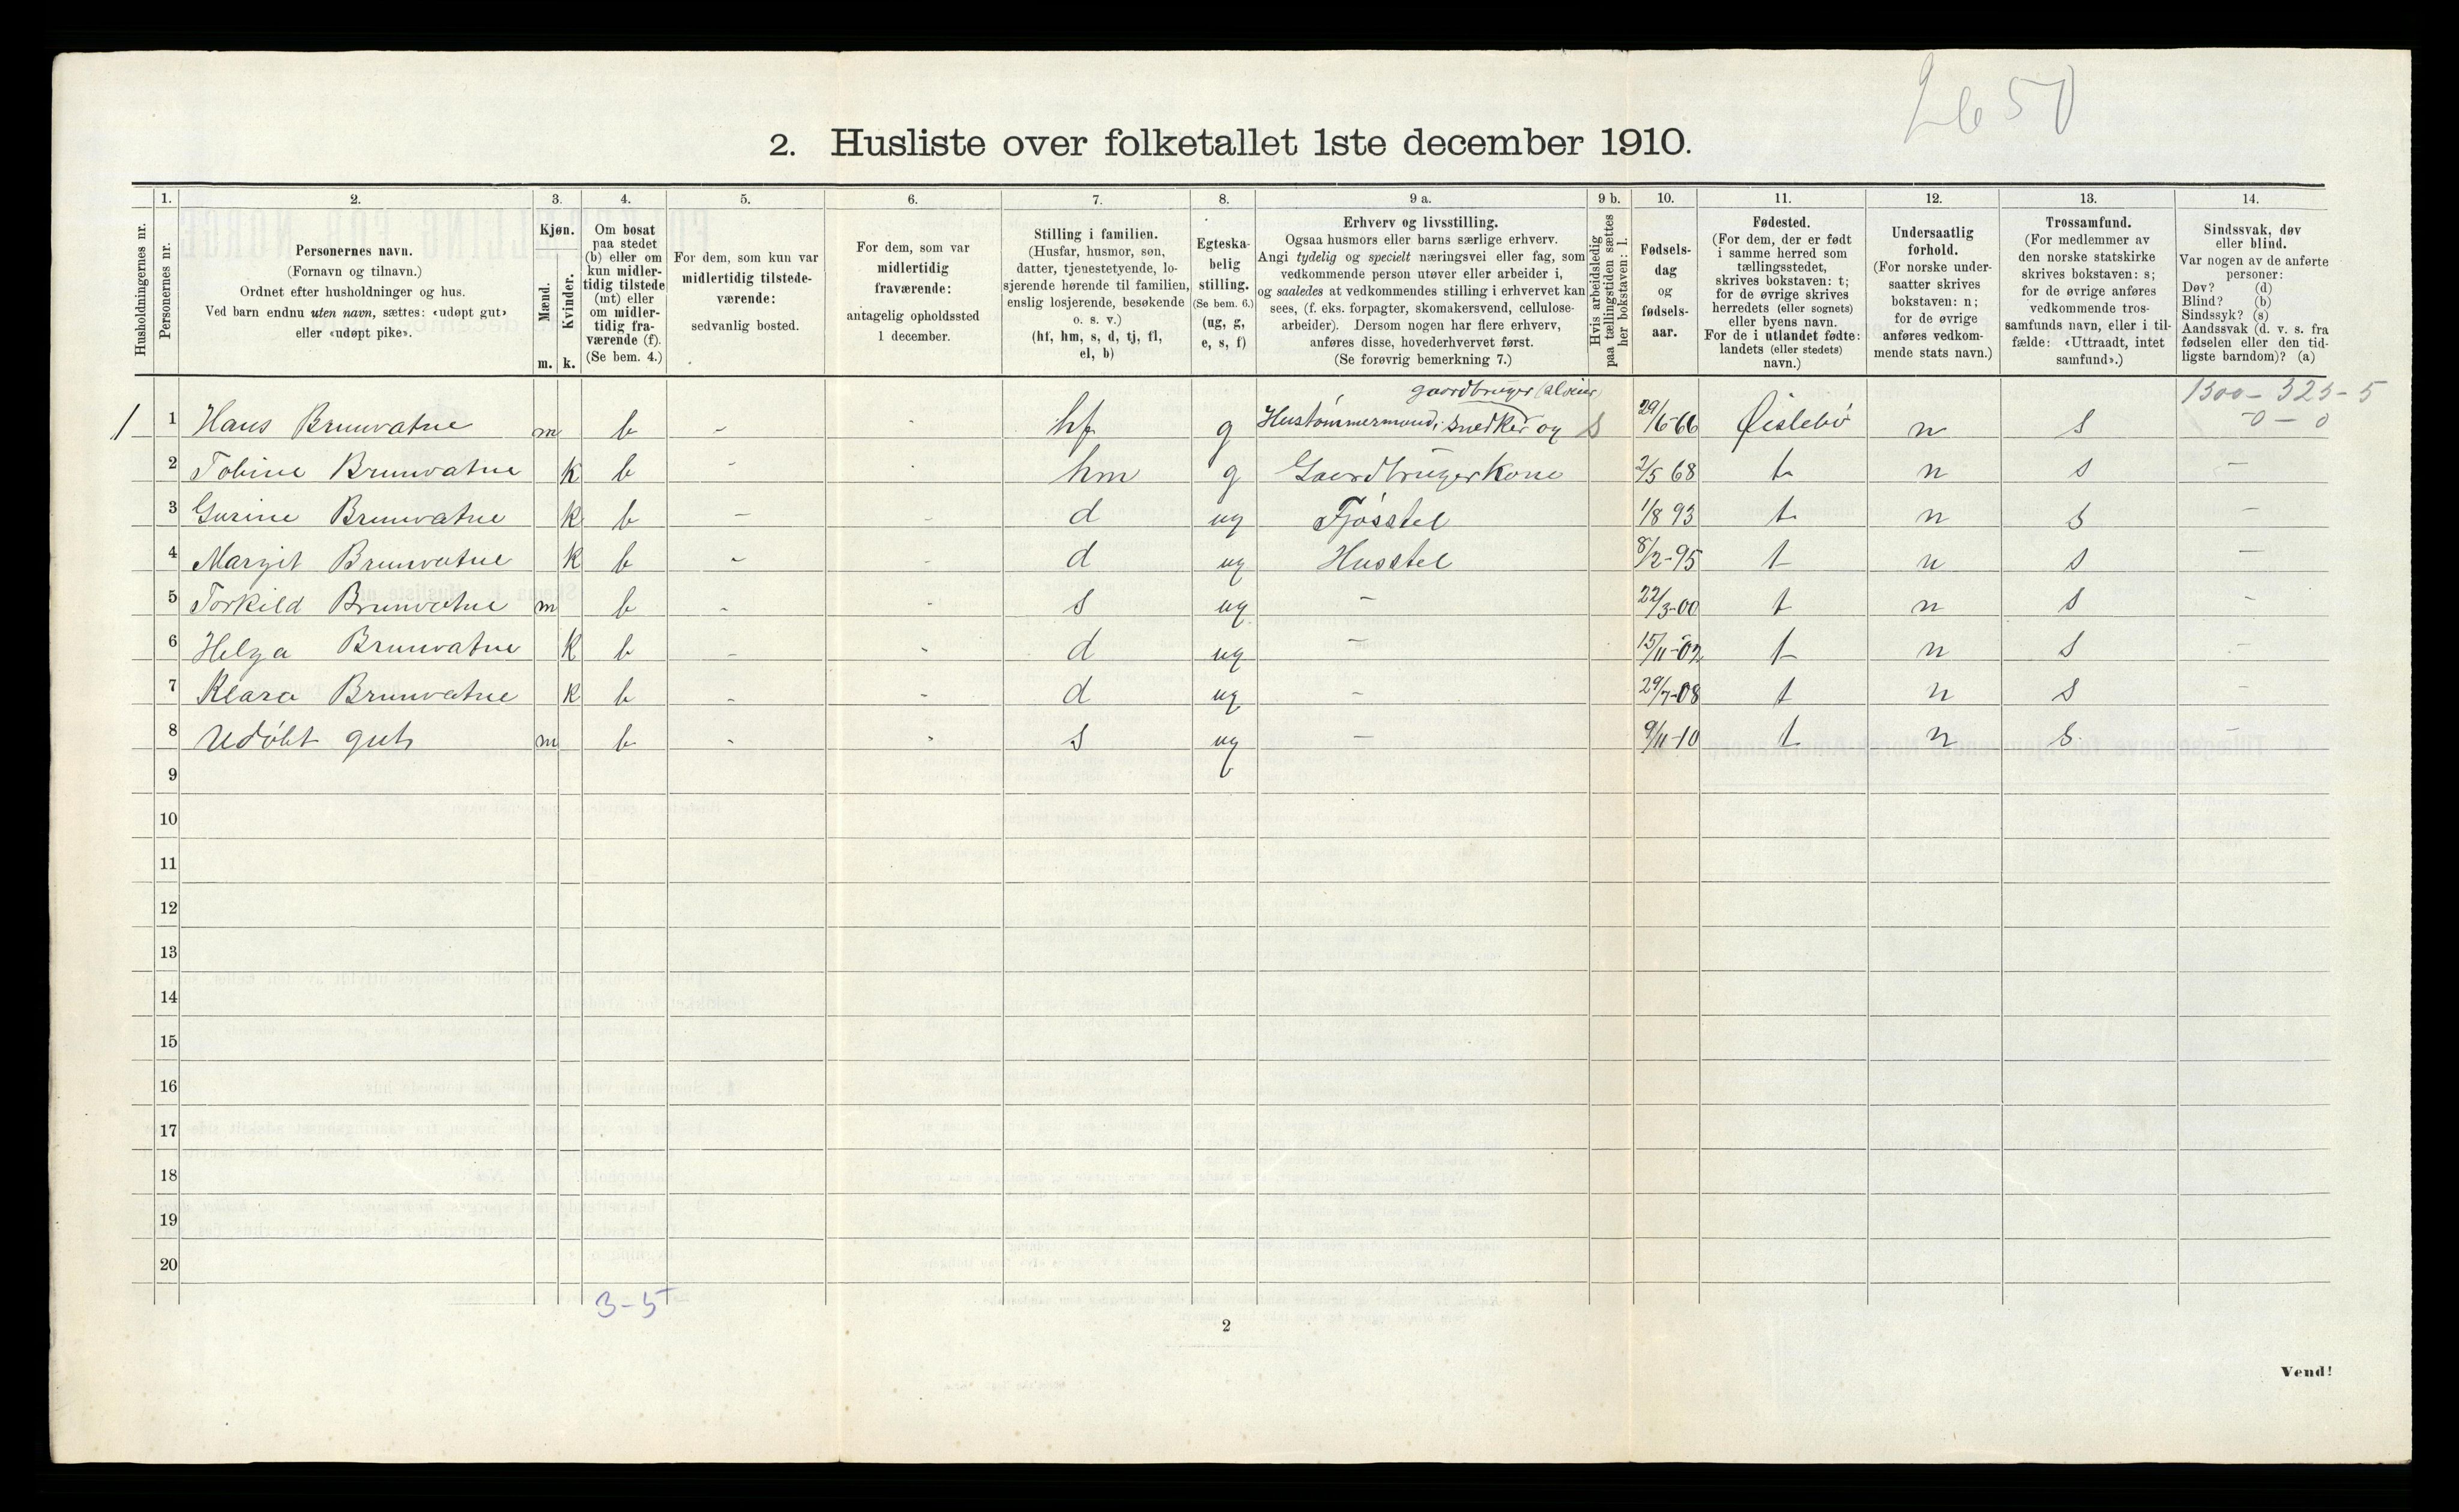 2650
2. Husliste over folketallet 1ste december 1910.
Husholdningernes nr.
1.
Personernes nr.
2.
Personernes navn.
(Fornavn og tilnavn.)
Ordnet efter husholdninger og hus.
Ved barn endnu uten navn, sættes: «udøpt gut»
eller «udøpt pike».
3.
Kjøn.
Mænd.
m.
Kvinder.
k.
4.
Om bosat
paa stedet
(b) eller om
kun midler-
tidig tilstede
(mt) eller
om midler-
tidig fra-
værende (f).
(Se bem. 4.)
5.
For dem, som kun var
midlertidig tilstede-
værende:
sedvanlig bosted.
6.
For dem, som var
midlertidig
fraværende:
antagelig opholdssted
1 december.
7.
Stilling i familien.
(Husfar, husmor, søn,
datter, tjenestetyende, lo-
sjerende hørende til familien,
enslig losjerende, besøkende
o. s. v.)
(hf, hm, s, d, tj, fl,
el, b)
8.
Egteska-
belig
stilling.
(Se bem. 6.)
(ug, g,
e, s, f)
9 a.
Erhverv og livsstilling.
Ogsaa husmors eller barns særlige erhverv.
Angi tydelig og specielt næringsvei eller fag, som
vedkommende person utøver eller arbeider i,
og saaledes at vedkommendes stilling i erhvervet kan
sees, (f. eks. forpagter, skomakersvend, cellulose-
arbeider). Dersom nogen har flere erhverv,
anføres disse, hovederhvervet først.
(Se forøvrig bemerkning 7.)
9 b.
Hvis arbeidsledig
paa tællingstiden sættes
her bokstaven: l.
10.
Fødsels-
dag
og
fødsels-
aar.
11.
Fødested.
(For dem, der er født
i samme herred som
tællingsstedet,
skrives bokstaven: t;
for de øvrige skrives
herredets (eller sognets)
eller byens navn.
For de i utlandet fødte:
landets (eller stedets)
navn.)
12.
Undersaatlig
forhold.
(For norske under-
saatter skrives
bokstaven: n;
for de øvrige
anføres vedkom-
mende stats navn.)
13.
Trossamfund.
(For medlemmer av
den norske statskirke
skrives bokstaven: s;
for de øvrige anføres
vedkommende tros-
samfunds navn, eller i til-
fælde: «Uttraadt, intet
samfund».)
14.
Sindssvak, døv
eller blind.
Var nogen av de anførte
personer:
Døv? (d)
Blind? (b)
Sindssyk? (s)
Aandssvak (d. v. s. fra
fødselen eller den tid-
ligste barndom)? (a)
gaardbruger (alseier)
1300 - 323 - 5
0 - 0
1 1 Hans Brunvatne m b - - hf g Hustømmermand, snedker og S 29/6-66 Øislebø n s
2 Tobine Brunvatne k b - - hm g Gaardbrugerkone 2/5 68 t n s -
3 Gurine Brunvatne k b - - d ug Fjøsstel 1/8 93 t n s -
4 Margit Brunvatne k b - - d ug Husstel 8/2-95 t n s -
5 Torkild Brunvatne m b - - s ug - 22/3-00 t n s -
6 Helga Brunvatne k b - - d ug - 15/11-02 t n s -
7 Klara Brunvatne k b - - d ug - 29/7-08 t n s -
8 Udøbt gut m b - - s ug - 9/11-10 t n s -
9
10
11
12
13
14
15
16
17
18
19
20
3-5
2
Vend!